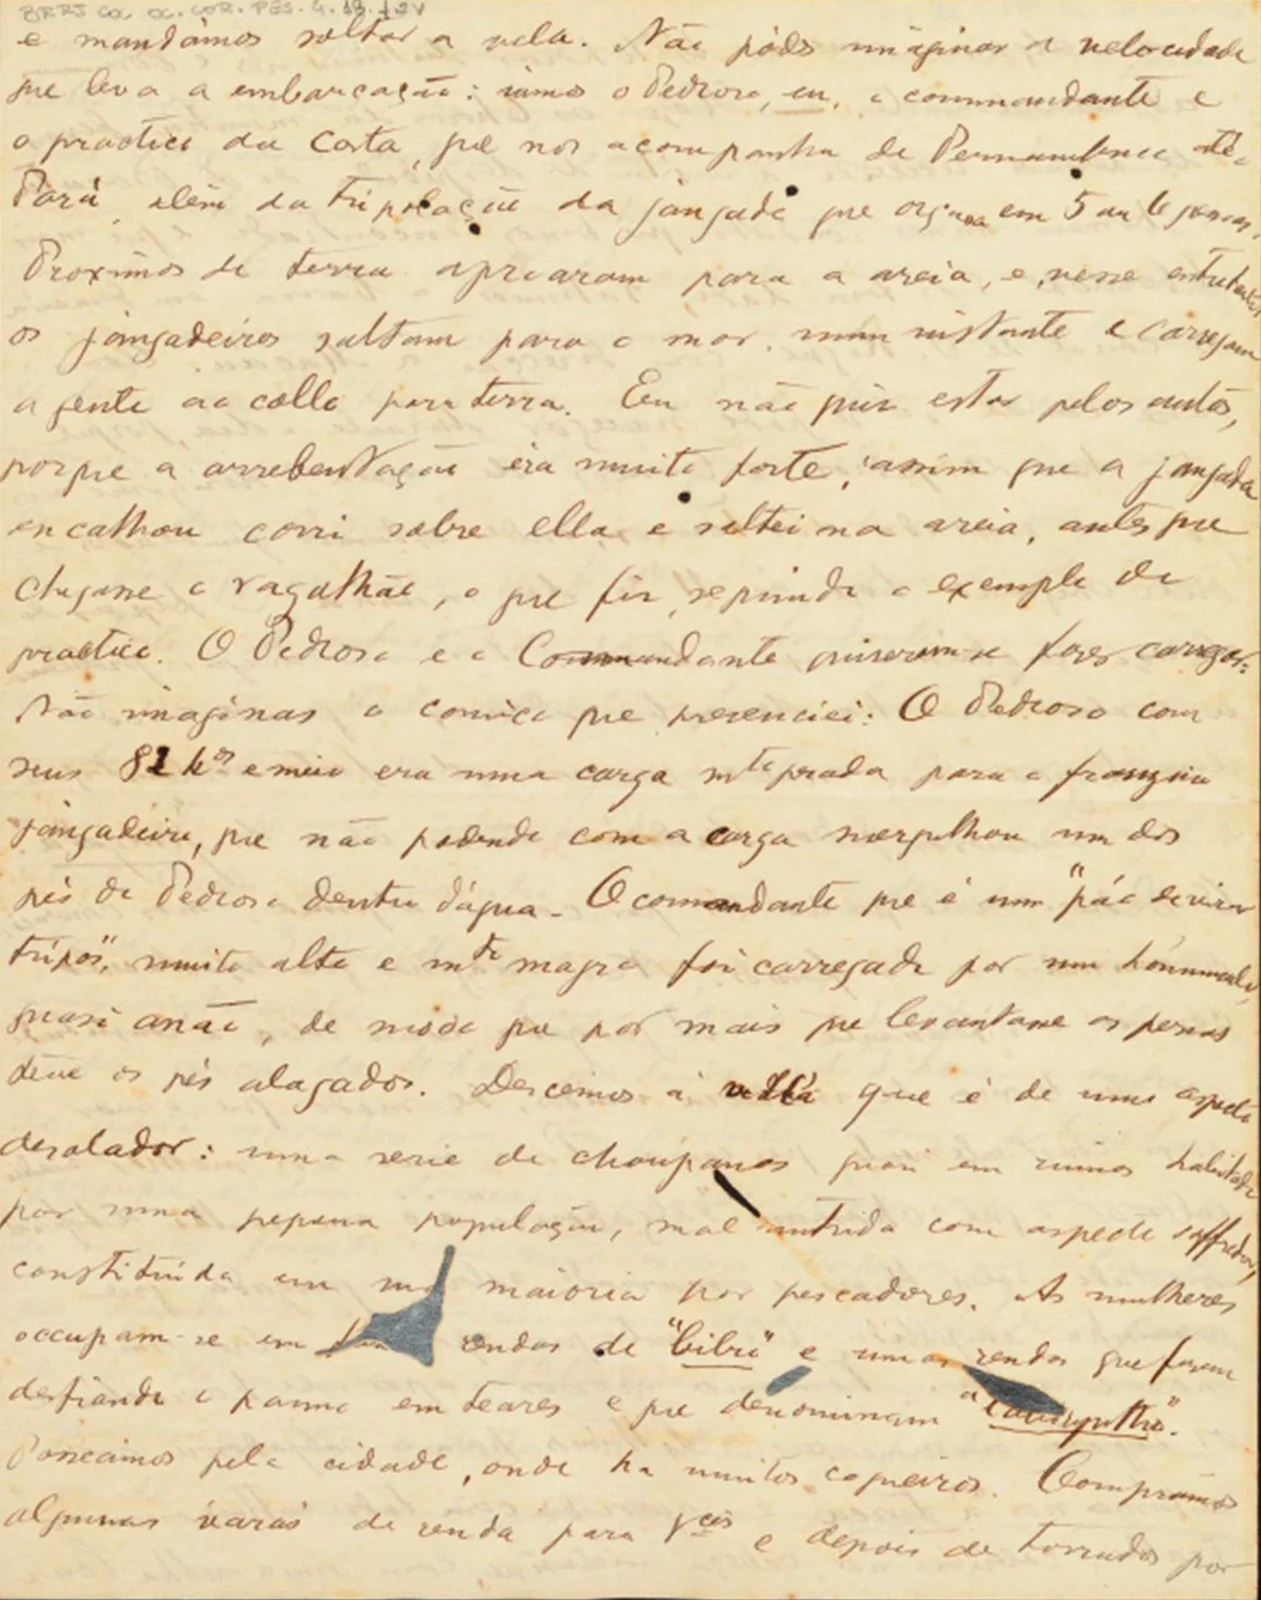 BRRJ COC OC. COR. PES. 4. 19. 12v
e mandámos soltar a vela. Não pódes imaginar a velocidade
que leva a embarcação: iamos o Pedroso, eu, o commandante e
o practico da Costa, que nos acompanha de Pernambuco até o
Pará, além da tripolação da jangada que orçava em 5 ou 6 pessoas.
Proximos de terra aproaram para a areia, e, nesse entretanto
os jangadeiros saltam para o mar num instante e carregam
a gente ao collo para terra. Eu não quiz estar pelos autos,
porque a arrebentação éra muito forte; assim que a jangada
encalhou corri sobre ella e saltei na areia, antes que
chegasse o vagalhão, o que fiz, seguindo o exemplo do
practico. O Pedroso e o Commandante quiseram se fazer carregar:
Não imaginas a comica que presenciei: O Pedroso com
seus 82 kos e meio era uma carga mto pesada para o franzino
jangadeiro, que não podendo com a carga mergulhou um dos
pés do Pedroso dentro d'agua. O comandante que é um "páo de virar
tripos", muito alto e mto magro foi carregado por um homunculo,
quasi anão, de modo que por mais que levantasse as pernas
teve os pés alagados. Descemos á villa que é de um aspecto
desolador: uma serie de choupanas quasi em ruinas habitada
por uma pequena população, mal nutrida com aspecto soffredor,
constituida em sua maioria por pescadores. As mulheres
occupam-se em rendas de "bilro" e umas rendas que fazem
desfiando o panno em teares e que denominam "a
Passeiámos pela cidade, onde ha muitos coqueiros. Comprámos
algumas varas de renda para Vcês e depois de torrados por